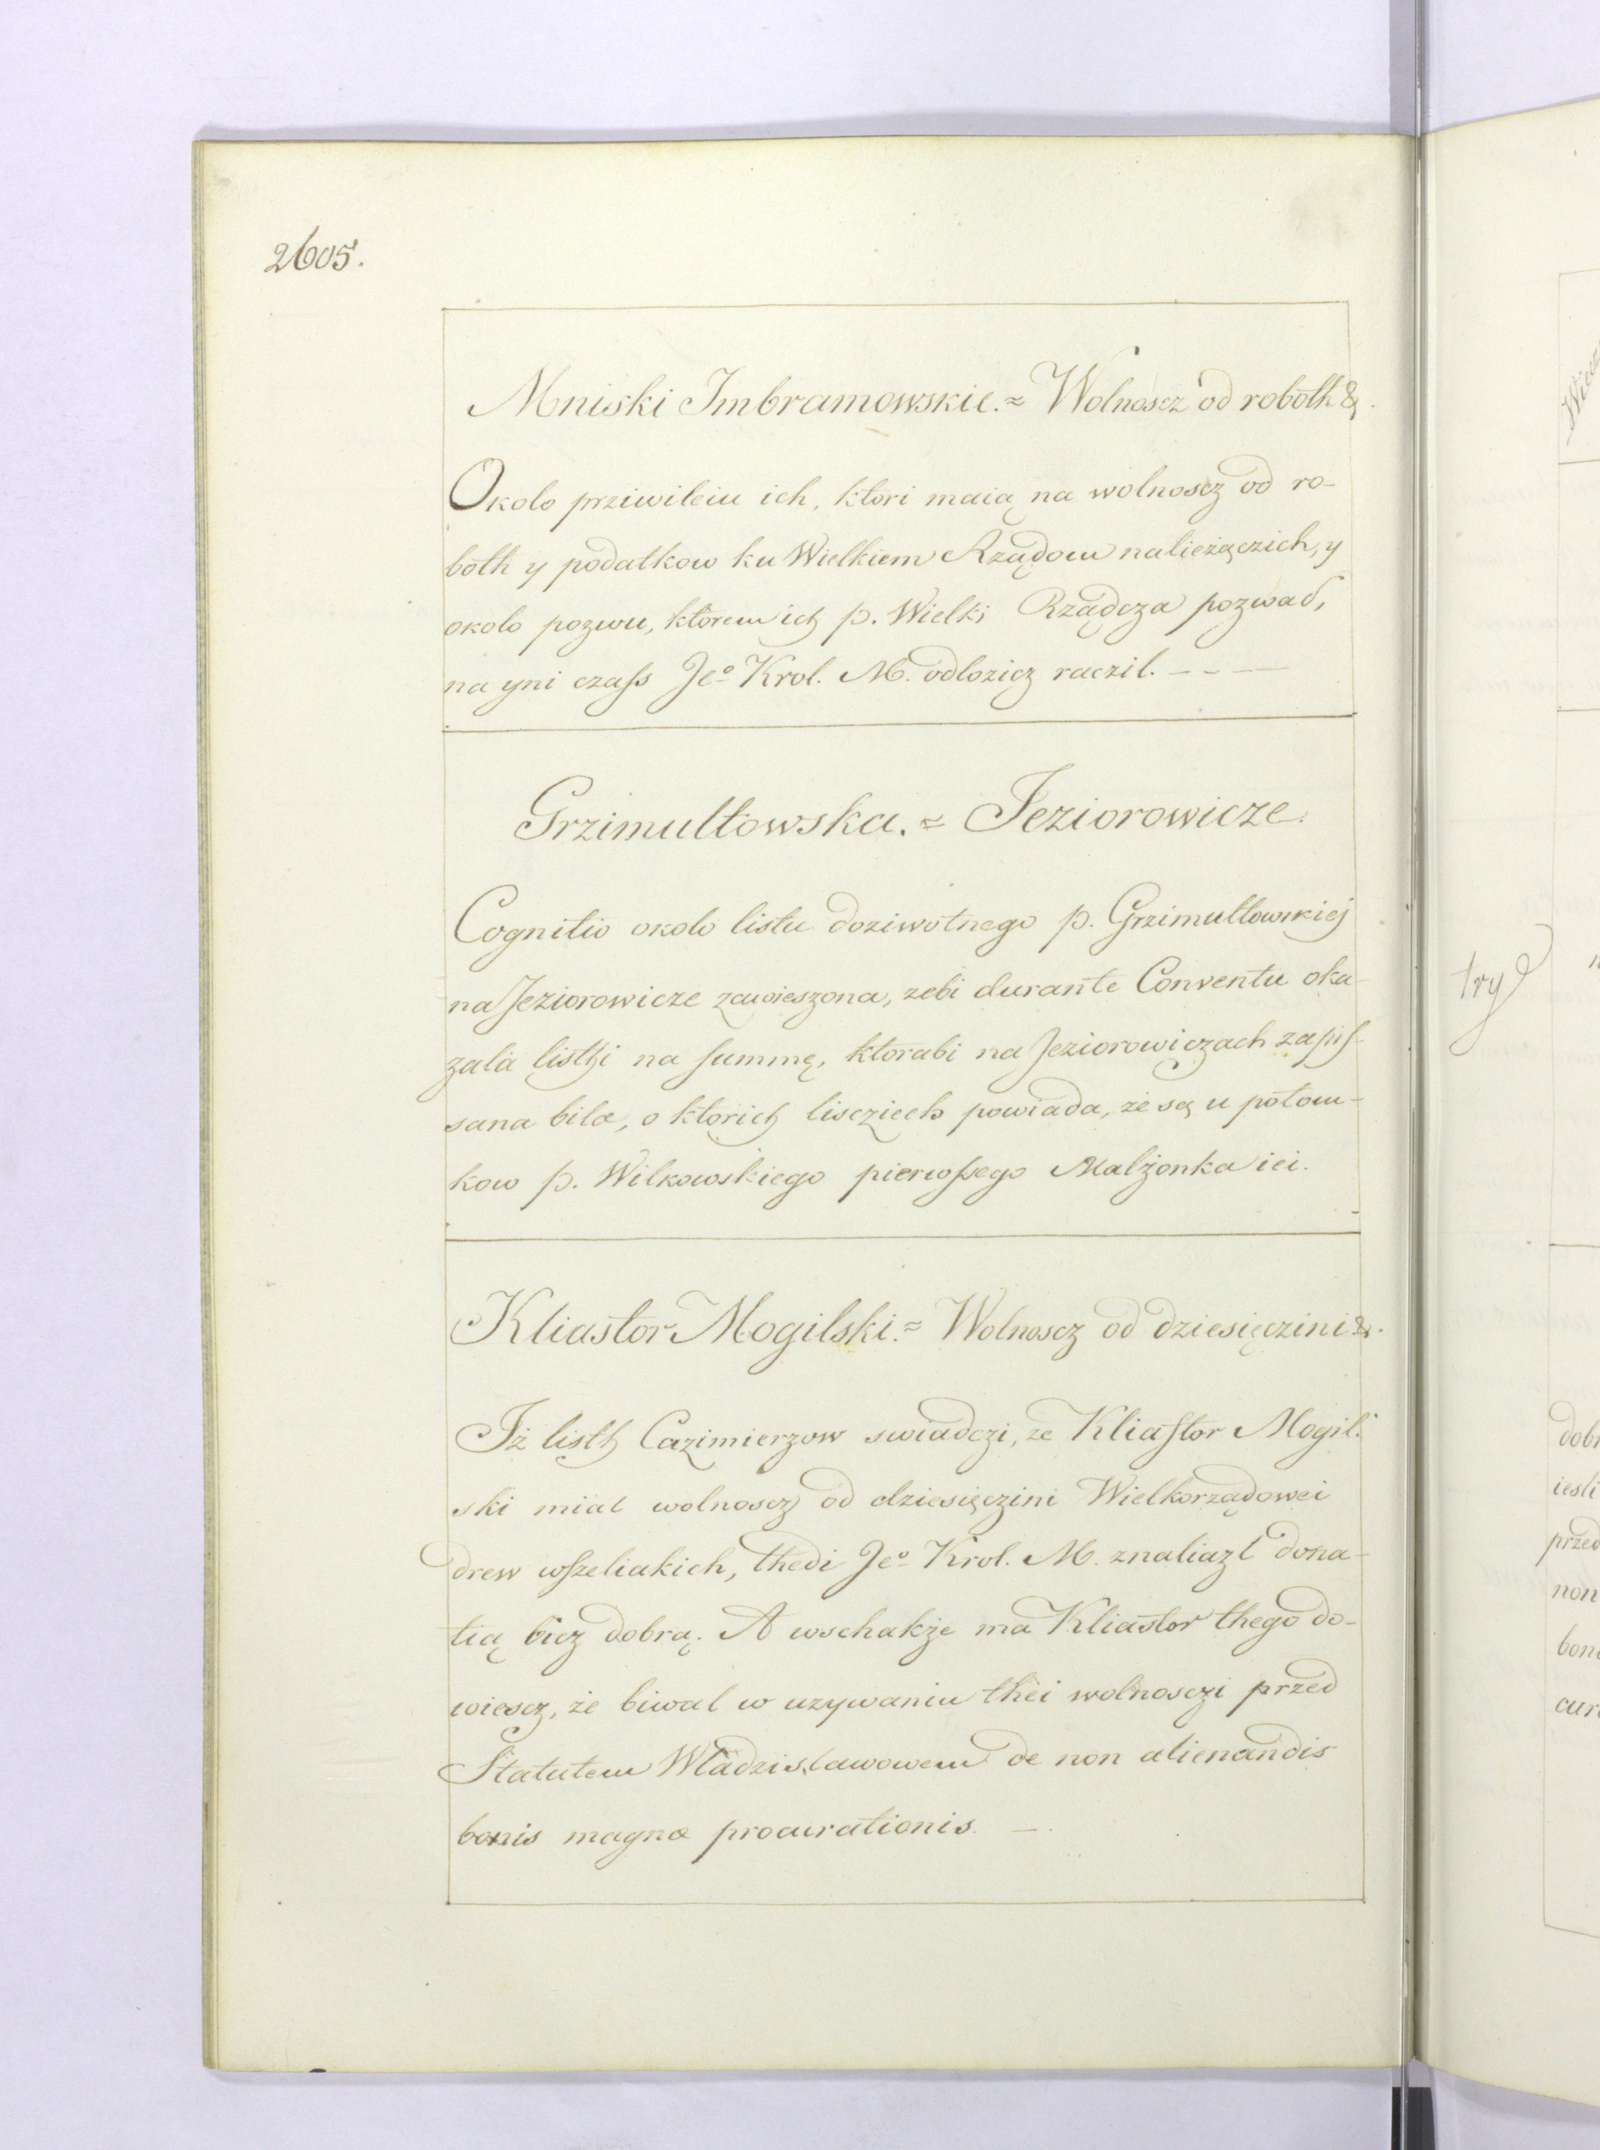 2605.
Mniski Imbramowskie. = Wolnoscz od roboth &.
Okolo prziwileiu ich, ktori maią na wolnoscz od ro-
both y podatkow ku Wielkiem Rządom należączich, y
okolo pozwu, ktorem ich p. Wielki Rządcza pozwał,
na yni czass Je° Krol. M. odlozicz raczil. - - -
Grzimultowska. = Jeziorowicze.
Cognitio okolo listu doziwotnego p. Grzimultowskiej
na Jeziorowicze zawieszona, zebi durante Conventu oka-
zala listhi na summę, ktorabi na Jeziorowiczach zapis-
sana bila, o ktorich liscziech powiada, że są u potom-
kow p. Wilkowskiego pierwssego Malżonka iei.
Kliastor Mogilski. = Wolnoscz od dziesięczini &.
Iż listh Cazimierzow swiadczi, że Kliastor Mogil-
ski mial wolnoscz od dziesięczini Wielkorządowei
drew wszeliakich, thedi Je° Krol. M. znaliazl dona-
tią bicz dobrą. A wschakże ma Kliastor thego do-
wiescz, że biwal w uzywaniu thei wolnosczi przed
Statutem Wladzislawowem de non alienandis
bonis magnæ procurationis. —
try
dob
iesli
przed
non
bon
cur